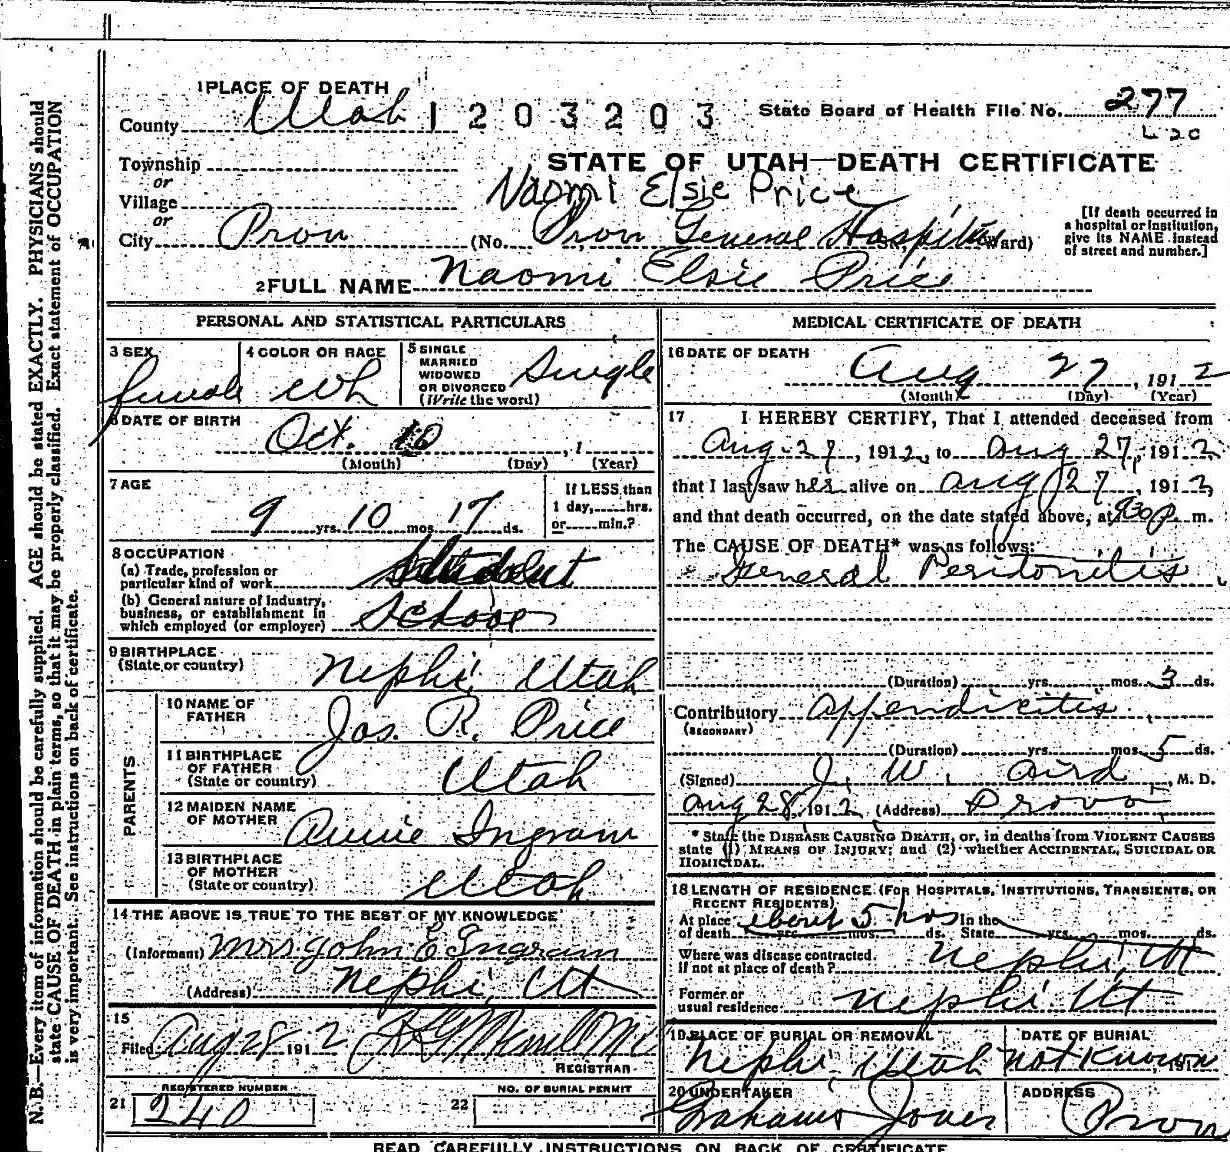 1 PLACE OF DEATH
County Utah 1 2 0 3 2 0 3 State Board of Health File No. 277
L 20
Township
or
Village
or
City Provo
STATE OF UTAH—DEATH CERTIFICATE
Naomi Elsie Price
(No. Provo General Hospital St., Ward)
[If death occurred in
a hospital or institution,
give its NAME instead
of street and number.]
2 FULL NAME Naomi Elsie Price
PERSONAL AND STATISTICAL PARTICULARS
3 SEX female
4 COLOR OR RACE Wh
5 SINGLE
MARRIED
WIDOWED
OR DIVORCED
(Write the word)
Single
6 DATE OF BIRTH
Oct. 10, 1
(Month) (Day) (Year)
7 AGE
9 yrs. 10 mos. 17 ds.
If LESS than
1 day, hrs.
or min.?
8 OCCUPATION
(a) Trade, profession or
particular kind of work Student
(b) General nature of Industry,
business, or establishment in
which employed (or employer) School
9 BIRTHPLACE
(State or country) Nephi, Utah
PARENTS
10 NAME OF
FATHER Jas. R. Price
11 BIRTHPLACE
OF FATHER
(State or country) Utah
12 MAIDEN NAME
OF MOTHER Annie Ingram
13 BIRTHPLACE
OF MOTHER
(State or country) Utah
14 THE ABOVE IS TRUE TO THE BEST OF MY KNOWLEDGE
(Informant) Mrs John E Ingram
(Address) Nephi, Ut
15
Filed Aug 28 1912
REGISTRAR
REGISTERED NUMBER
21 240
NO. OF BURIAL PERMIT
22
MEDICAL CERTIFICATE OF DEATH
16 DATE OF DEATH
Aug 27, 1912
(Month) (Day) (Year)
17 I HEREBY CERTIFY, That I attended deceased from
Aug. 27, 1912, to Aug 27, 1912
that I last saw her alive on Aug 27, 1912,
and that death occurred, on the date stated above, at 9:30 P. m.
The CAUSE OF DEATH* was as follows:
General Peritonitis
(Duration) yrs. mos. 3 ds.
Contributory Appendicitis
(SECONDARY)
(Duration) yrs. mos. 5 ds.
(Signed) J. W. Aird, M. D.
Aug 28, 1912 (Address) Provo
* State the DISEASE CAUSING DEATH, or, in deaths from VIOLENT CAUSES
state (1) MEANS OF INJURY; and (2) whether ACCIDENTAL, SUICIDAL OR
HOMICIDAL.
18 LENGTH OF RESIDENCE (FOR HOSPITALS, INSTITUTIONS, TRANSIENTS, OR
RECENT RESIDENTS)
At place about 5 hrs In the
of death yrs. mos. ds. State yrs. mos. ds.
Where was disease contracted,
if not at place of death? Nephi, Ut
Former or
usual residence Nephi Ut
19 PLACE OF BURIAL OR REMOVAL
Nephi, Utah
DATE OF BURIAL
not known, 191
20 UNDERTAKER
ADDRESS
Provo
READ CAREFULLY INSTRUCTIONS ON BACK OF CERTIFICATE
N. B.—Every item of information should be carefully supplied. AGE should be stated EXACTLY. PHYSICIANS should
state CAUSE OF DEATH in plain terms, so that it may be properly classified. Exact statement of OCCUPATION
is very important. See instructions on back of certificate.